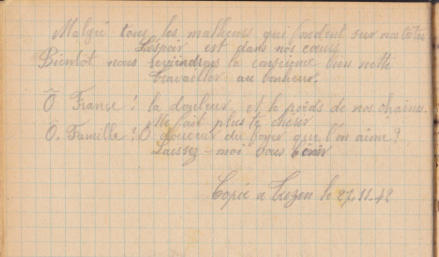 Malgré tous les malheurs qui fondent sur nos têtes
L'espoir est dans nos cœurs
Bientôt nous la consigne bien nette
Travailler au bonheur.
Ô France ! la douleur et le poids de nos chaînes
Me fait plus te chérir
Ô Famille ! Ô douceur du foyer que l'on aime !
Laissez-moi vous bénir
Copié a le 27.11.42